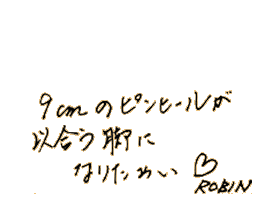 9cmのピンヒールが
似合う脚に
なりたぁい♡
ROBIN